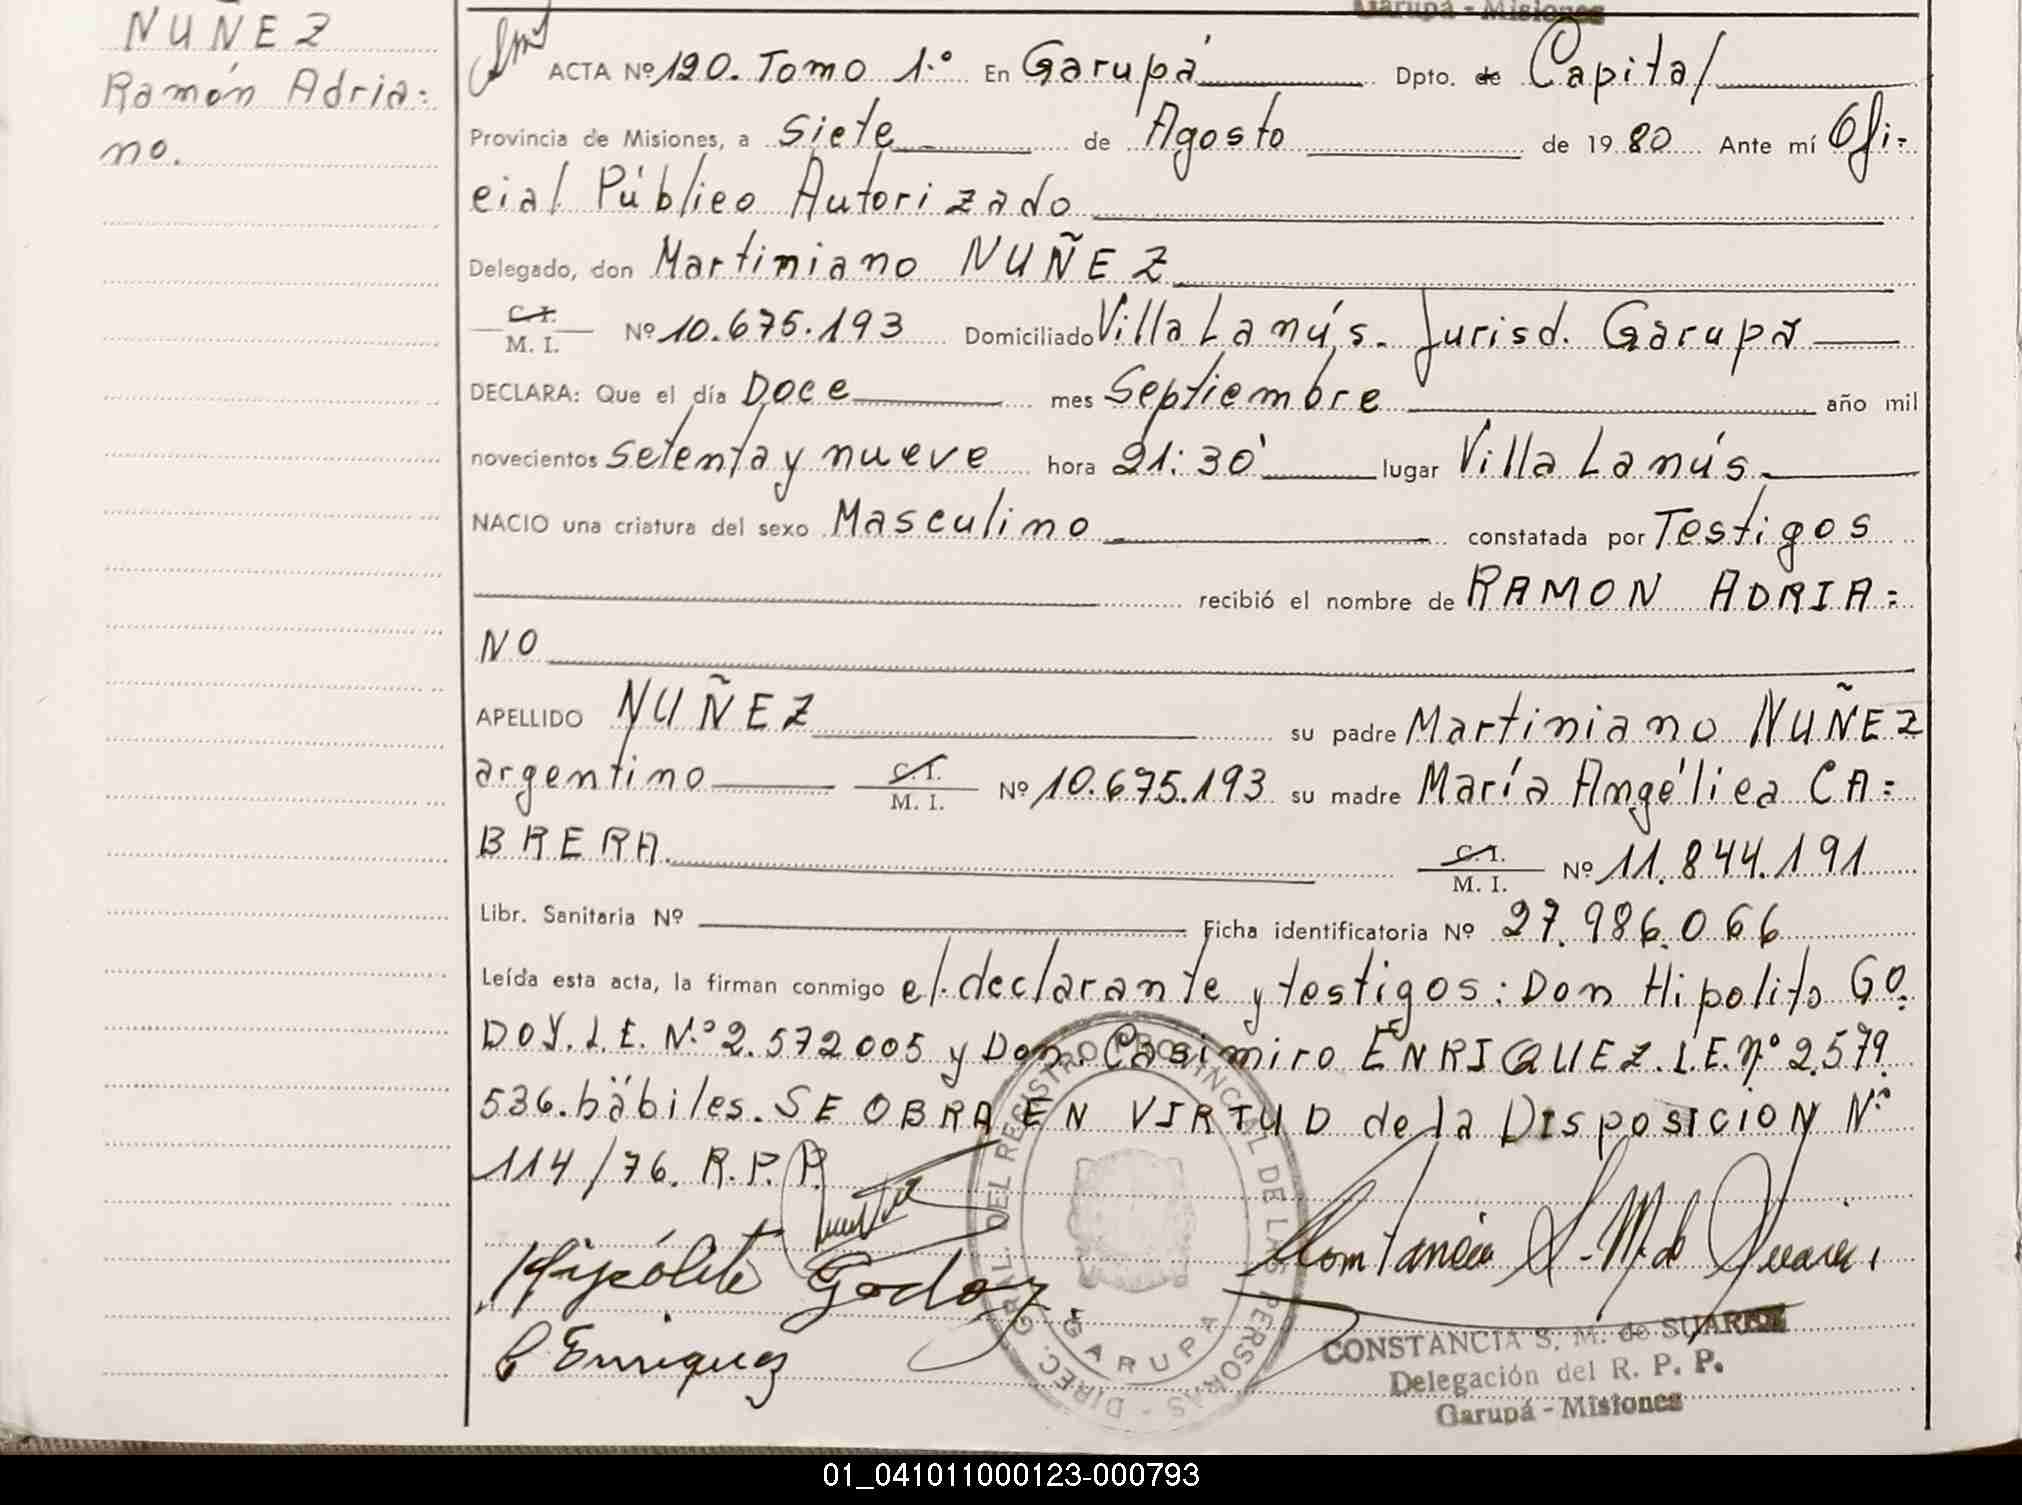 Garupá - Misiones
NUÑEZ
Ramón Adria=
no.
ACTA Nº 120. Tomo 1.º En Garupá Dpto. de Capital
Provincia de Misiones, a Siete de Agosto de 1980 Ante mí Ofi=
cial Público Autorizado
Delegado, don Martiniano NUÑEZ
C. I.
M. I. Nº 10.675.193 Domiciliado Villa Lanús. Jurisd. Garupá
DECLARA: Que el día Doce mes Septiembre año mil
novecientos setenta y nueve hora 21:30' lugar Villa Lanús
NACIO una criatura del sexo Masculino constatada por Testigos
recibió el nombre de RAMON ADRIA=
NO
APELLIDO NUÑEZ su padre Martiniano NUÑEZ
argentino C. I.
M. I. Nº 10.675.193 su madre María Angélica CA=
BRERA. C. I.
M. I. Nº 11.844.191
Libr. Sanitaria Nº Ficha identificatoria Nº 27.986.066
Leída esta acta, la firman conmigo el declarante y testigos: Don Hipolito GO=
DOY. L.E. N.º 2.572005 y Don Casimiro ENRIQUEZ. L.E. Nº 2.579.
536. hábiles. SE OBRA EN VIRTUD de la DISPOSICION Nº
114/76. R.P.P.
Hipólito Godoy
C Enriquez
Constancia S. M. de Suarez
DIREC. GRAL. DEL REGISTRO PROVINCIAL DE LAS PERSONAS - GARUPA
CONSTANCIA S. M. de SUAREZ
Delegación del R. P. P.
Garupá - Misiones
01_041011000123-000793